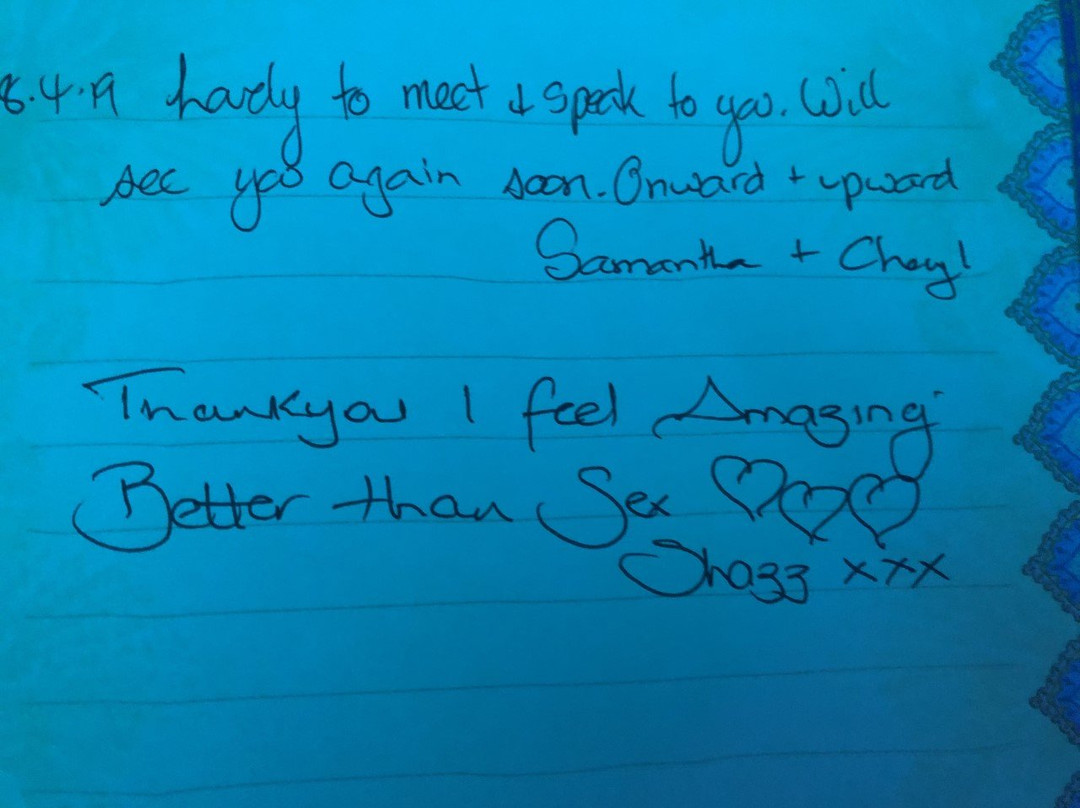 8.4.19 Lovely to meet & speak to you. Will
see you again soon. Onward + upward
Samantha + Cheryl
Thankyou I feel Amazing
Better than Sex ♡♡♡
Shazz xxx